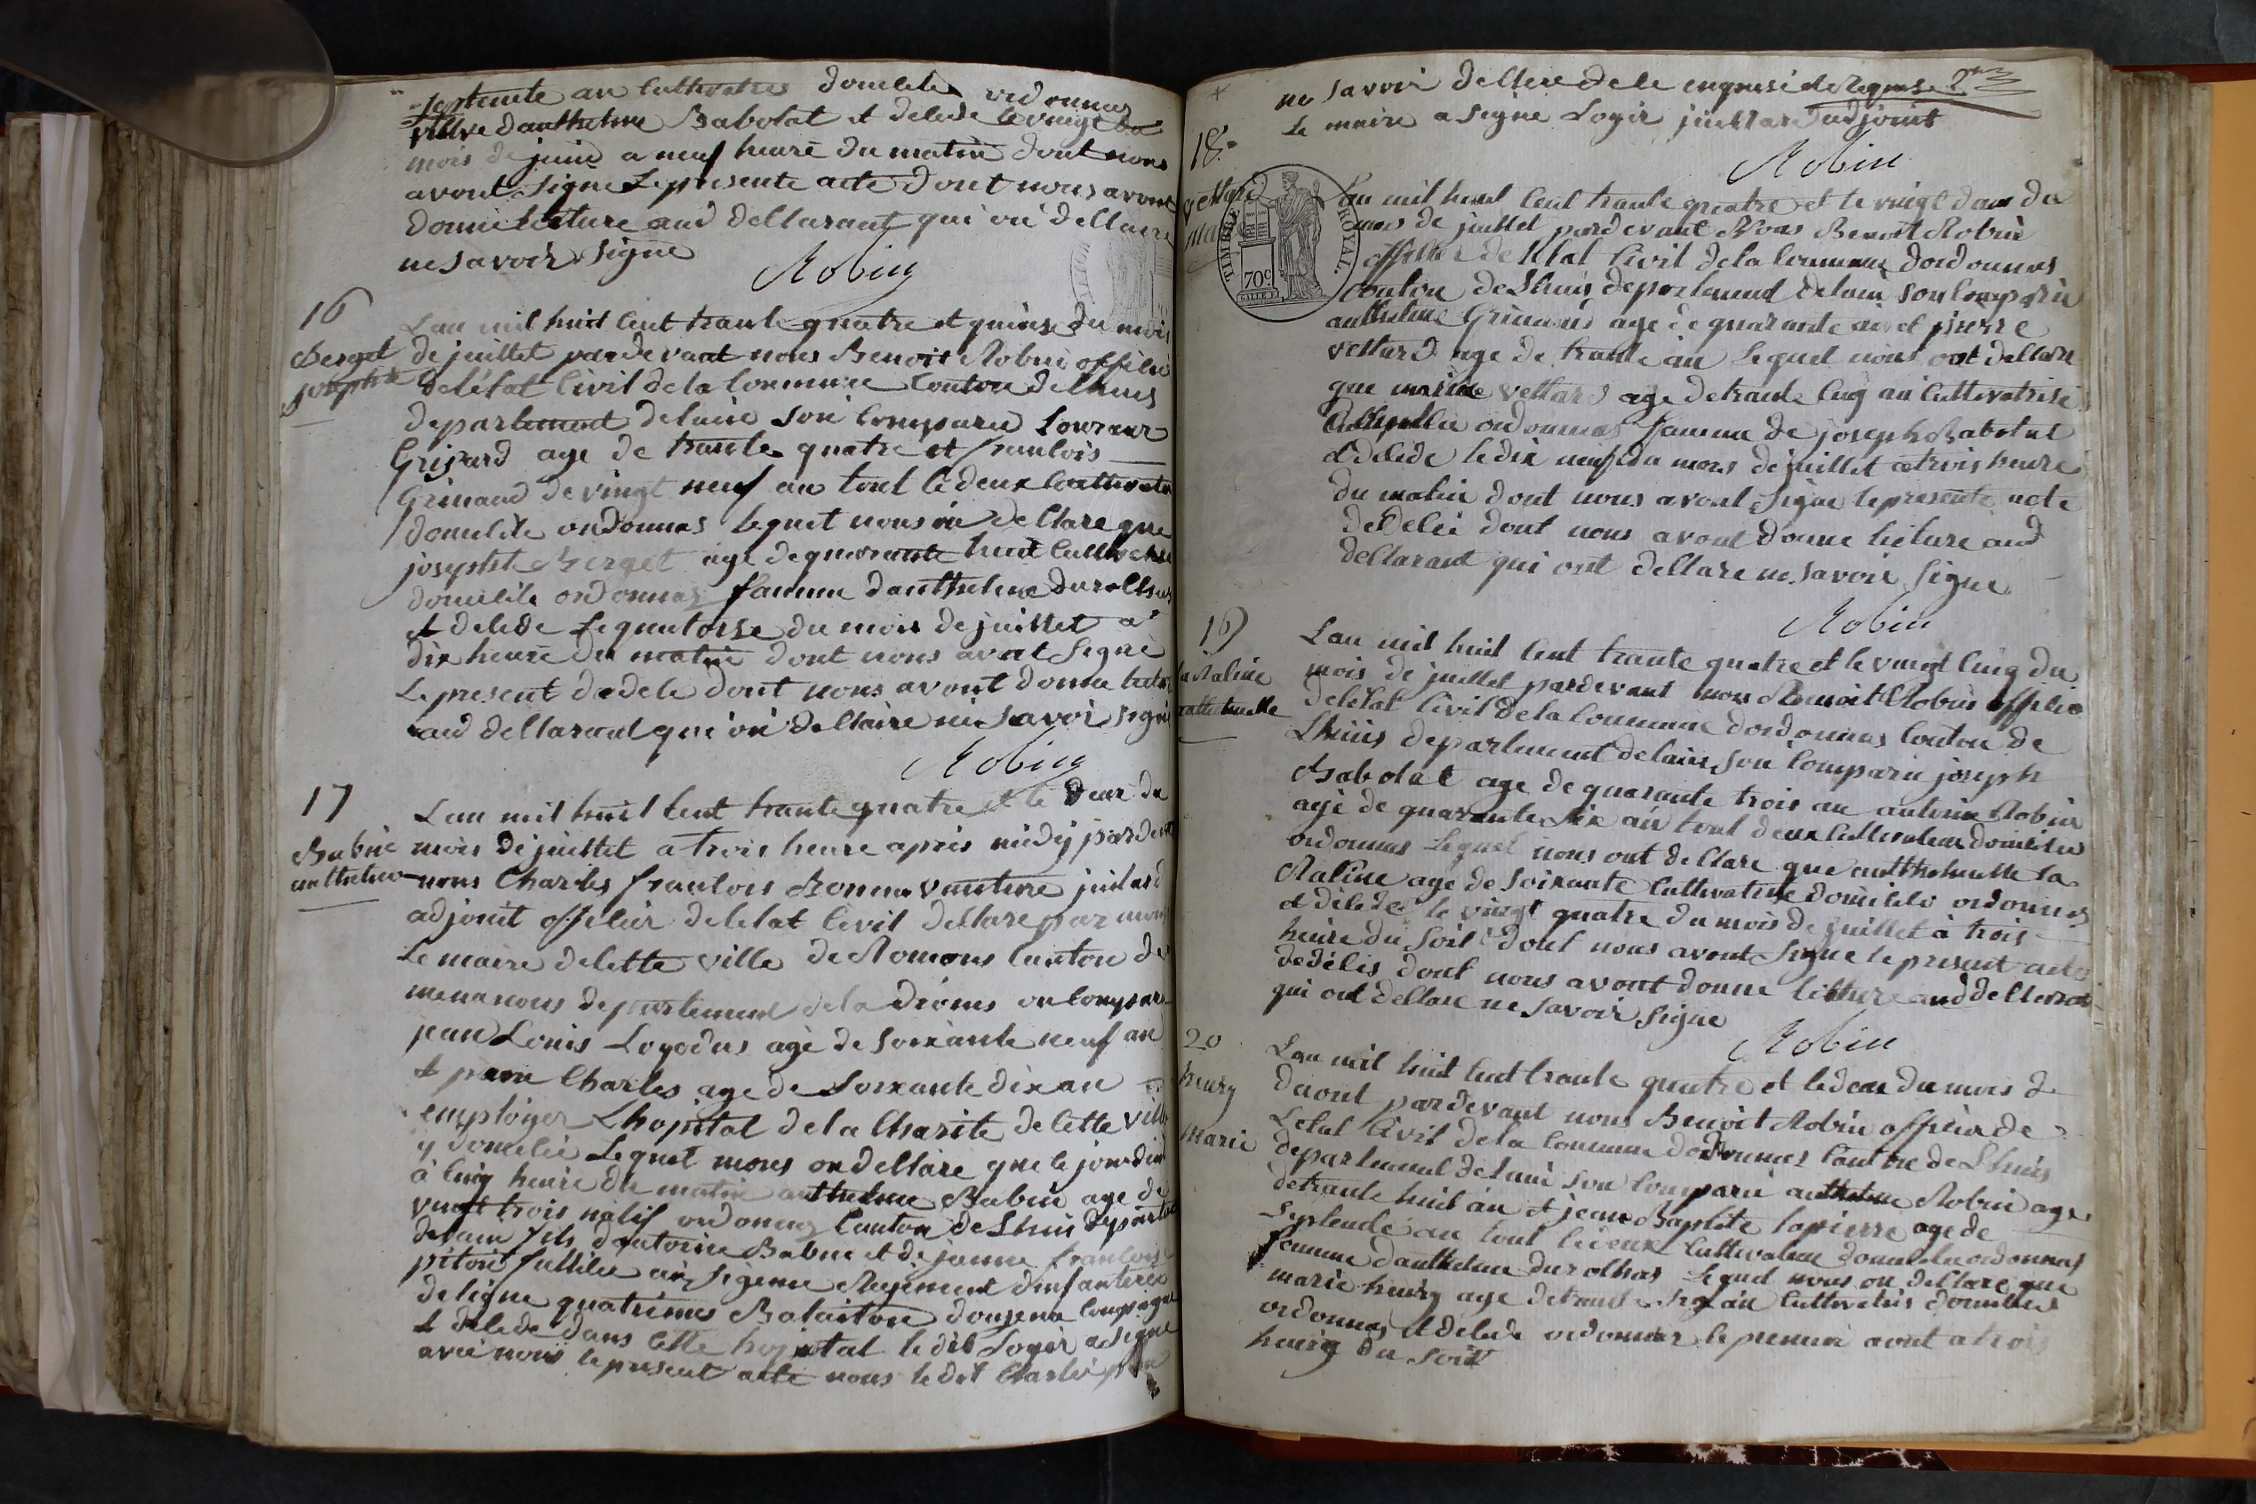 septente an Cultivatris domilite ordonnas
vellve danthelme Babolat et delede le vingt
mois de juin a neuf heure du matin dont nous
avont signe Le presente acte dont nous avont
donne lecture aud dellarant qui on dellaire
ne savoir signe
Robin
16
Berget
josephte
Lan mil huit cent trante quatre et quinse du mois
de juillet pardevant nous Benoit Robin offilié
deletat Civil de la Commune Conton de Lhuis
departement delain son Comparu
Grisard age de trante quatre et franlois
Grinand de vingt neuf an tout le deux Cultivate
domilite ordonnas lequel nous on dellare que
josephte Berget age de quarante huit Cultivatris
domilite ordonnas famme danthelme Durolhas
et delede Le quatorse du mois de juillet a
dix heure du matin dont nous avont Signé
Le present dedele dont nous avont donne
aud dellarant qui on dellaire ne Savoir signe
Robin
17
Babin
anthelme
Lan mil huit cent trante quatre et le deux du
mois de juillet a trois heure apres midy pardev
nous Charles franlois juilard
adjoint offilier deletat Civil dellare par mons
Le maire delette ville de Romans Canton de
departement dela Drome on Compare
jean Louis Loyodus age de soixante neuf an
et Charles age de Soixante dix an
employer Lhopital dela Charite de lette ville
y domelie Lequel nous on dellare que le jourdui
à Cinq heure du matin anthelme Babin age de
vingt trois natif ordonnas Canton de Lhuis departe
delain fils dantoine Babin et de jeanne franloise
piton fusillie Regiment dinfanterie
deligne quatrieme Batailon dousieme Compagne
et delede dans lette hopital le dit Loyer a signe
avec nous le present acte nous le dit Charles
ne savoir dellere de le enquise de Reques
Le maire a signe Loyir juillard adjoint
Robin
18
vettard
TIMBRE ROYAL
70c
Lan mil huit Cent trante quatre et le vingt du
mois de juillet pardevant Nous Benoit Robin
offilier de letat Civil de la Commune dordonnas
Conton de Lhuis departement delain son Comparu
anthelme Grinand age de quarante an et pierre
vettard age de trante an lequel nous ont dellare
que marie vettard age de trante Cinq an Cultivatrise
domelie ordonnas famme de joseph Babolat
et delede le dix neuf du mois de juillet a trois heure
du matin dont nous avont Signe le presente acte
dedelei dont nous avont donne licture aud
dellarant qui ont dellare ne savoir Signe
Robin
19
la Raline
anthelmette
Lan mil huit Cent trante quatre et le vingt Cinq du
mois de juillet pardevant nous Benoit Robin offilie
deletat Civil dela Commune dordonnas Conton de
Lhuis departement delain son Comparu joseph
Babolat age de quarante trois an antoine Robin
age de quarante six an tout deux Cultivateur domilie
ordonnas Lequel nous ont dellare que anthelmette la
Raline age de Soixante Cultivatrise domilile ordonnas
et delede le vingt quatre du mois de juillet à trois
heure du Soir dont nous avont signe le present acte
dedelis dont nous avont donne licture aud dellarant
qui ont dellare ne savoir signe
Robin
20
heury
Marie
Lan mil huit Cent trante quatre et ledeux du mois d
daout pardevant nous Benoit Robin offilier de
Letat Civil de la Commune dordonnas Canton de Lhuis
departement delain son Comparu anthelme Robin age
detrante huit an et jean Baptiste lapierre age de
septende an tout le deux Cultivateur domilie ordonnas
famme danthelme durolhas Lequel nous on dellare que
marie heury age detrante an Cultivatris domilies
ordonnas et delede ordonnas le premier aout a trois
heure du soir